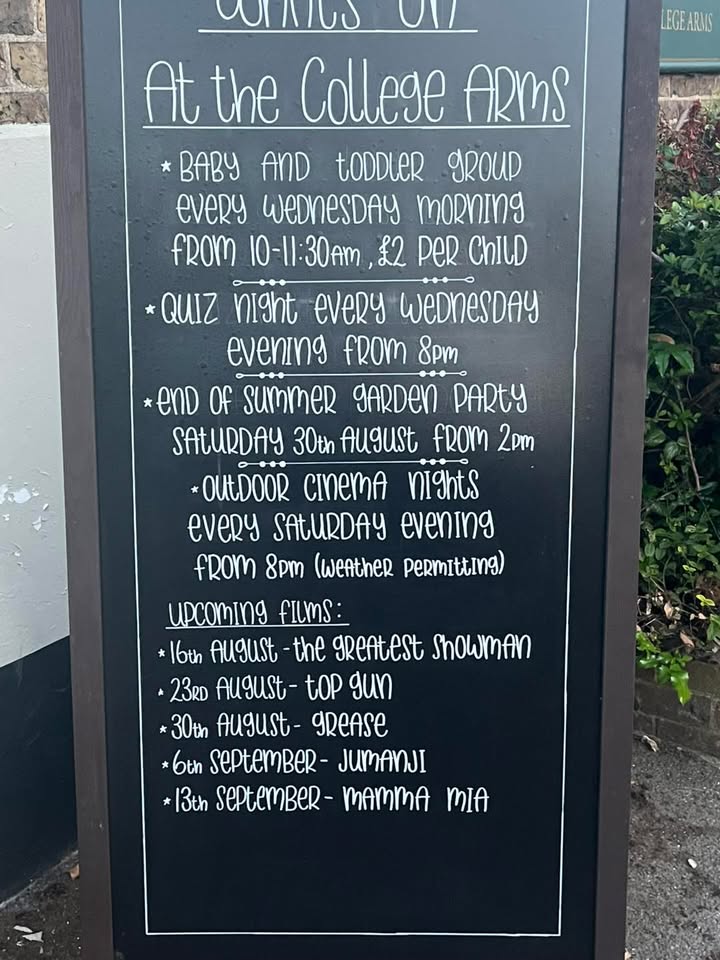 What's On
At the College Arms
* Baby and Toddler Group
every Wednesday morning
from 10-11:30am, £2 per child
* Quiz night every Wednesday
evening from 8pm
* End of Summer Garden Party
Saturday 30th August from 2pm
* Outdoor Cinema Nights
every Saturday evening
from 8pm (weather permitting)
Upcoming films:
* 16th August - The Greatest Showman
* 23rd August - Top Gun
* 30th August - Grease
* 6th September - Jumanji
* 13th September - Mamma Mia
LEGE ARMS